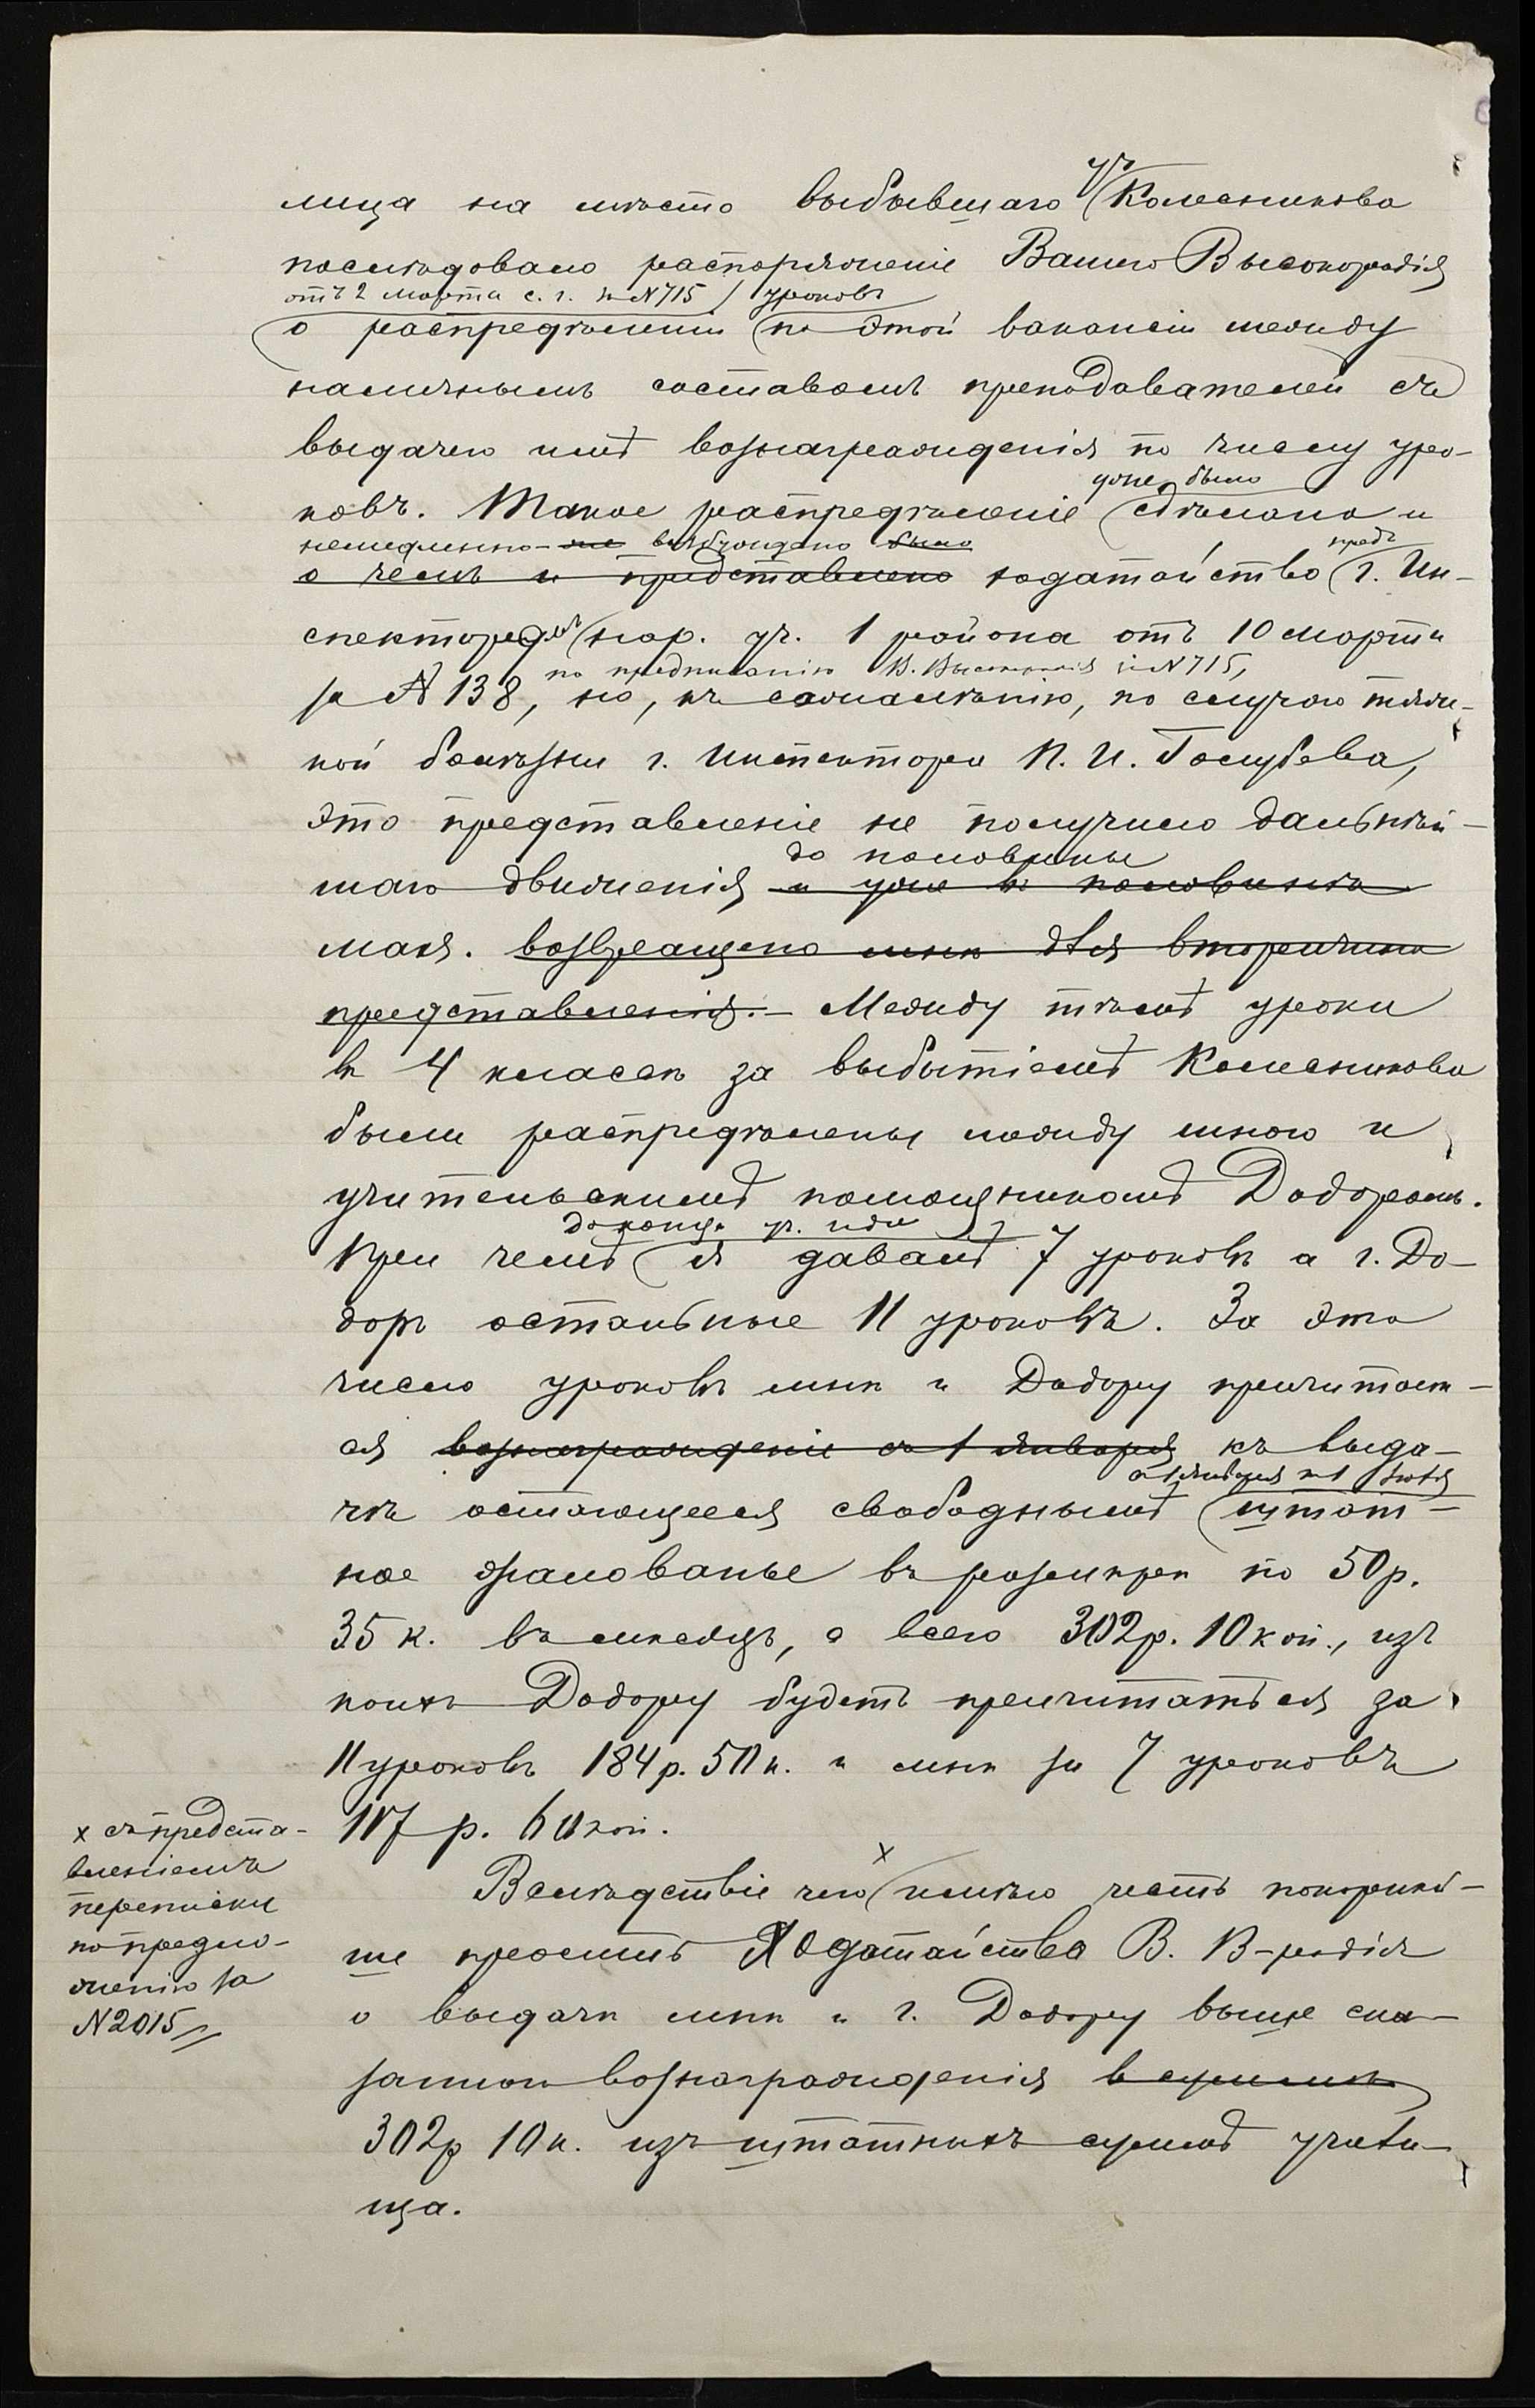 уч.
лица на мѣсто выбывшаго Колесникова
послѣдовало распоряженіе Вашего Высокородія
отъ 2 марта с. г. за №715 уроковъ
о распредѣленіи по этой вакансіи между
наличнымъ составомъ преподавателей съ
выдачею имъ вознагражденія по числу уро-
уже было
ковъ. Такое распредѣленіе сдѣлано и
немедленно-же возбуждено было предъ
о чемъ и представлено ходатайство г. Ин-
спекторомъ нар. уч. 1 района отъ 10 марта
по предписанію В. Высокородія за №715,
за №138, но, къ сожалѣнію, по случаю тяж-
кой болѣзни г. Инспектора П. И. Голубева,
это представленіе не получило дальнѣй-
до половины
шаго движенія и уже въ половинѣ
мая. возвращено мнѣ для вторичнаго
представленія. – Между тѣмъ уроки
въ 4 классѣ за выбытіемъ Колесникова
были распредѣлены между мною и
учительскимъ помощникомъ Додоромъ.
до конца уч. года
При чемъ я давалъ 7 уроковъ а г. До-
доръ остальные 11 уроковъ. За это
число уроковъ мнѣ и Додору причитает-
ся вознагражденіе съ 1 января къ выда-
съ 1 января по 1 іюля
чѣ остающееся свободнымъ штат-
ное жалованье въ размѣрѣ по 50 р.
35 к. въ мѣсяцъ, а всего 302 р. 10 коп., изъ
коихъ Додору будетъ причитаться за
11 уроковъ 184 р. 50 к. и мнѣ за 7 уроковъ
117 р. 60 коп.
х съ предста-
вленіемъ
переписки
по предло-
женію за
№2015
х
Вслѣдствіе чего имѣю честь покорнѣй-
ше просить ходатайства В. В-родія
о выдачѣ мнѣ и г. Додору выше ска-
заннаго вознагражденія в суммѣ
302 р 10 к. изъ штатныхъ суммъ учили-
ща.